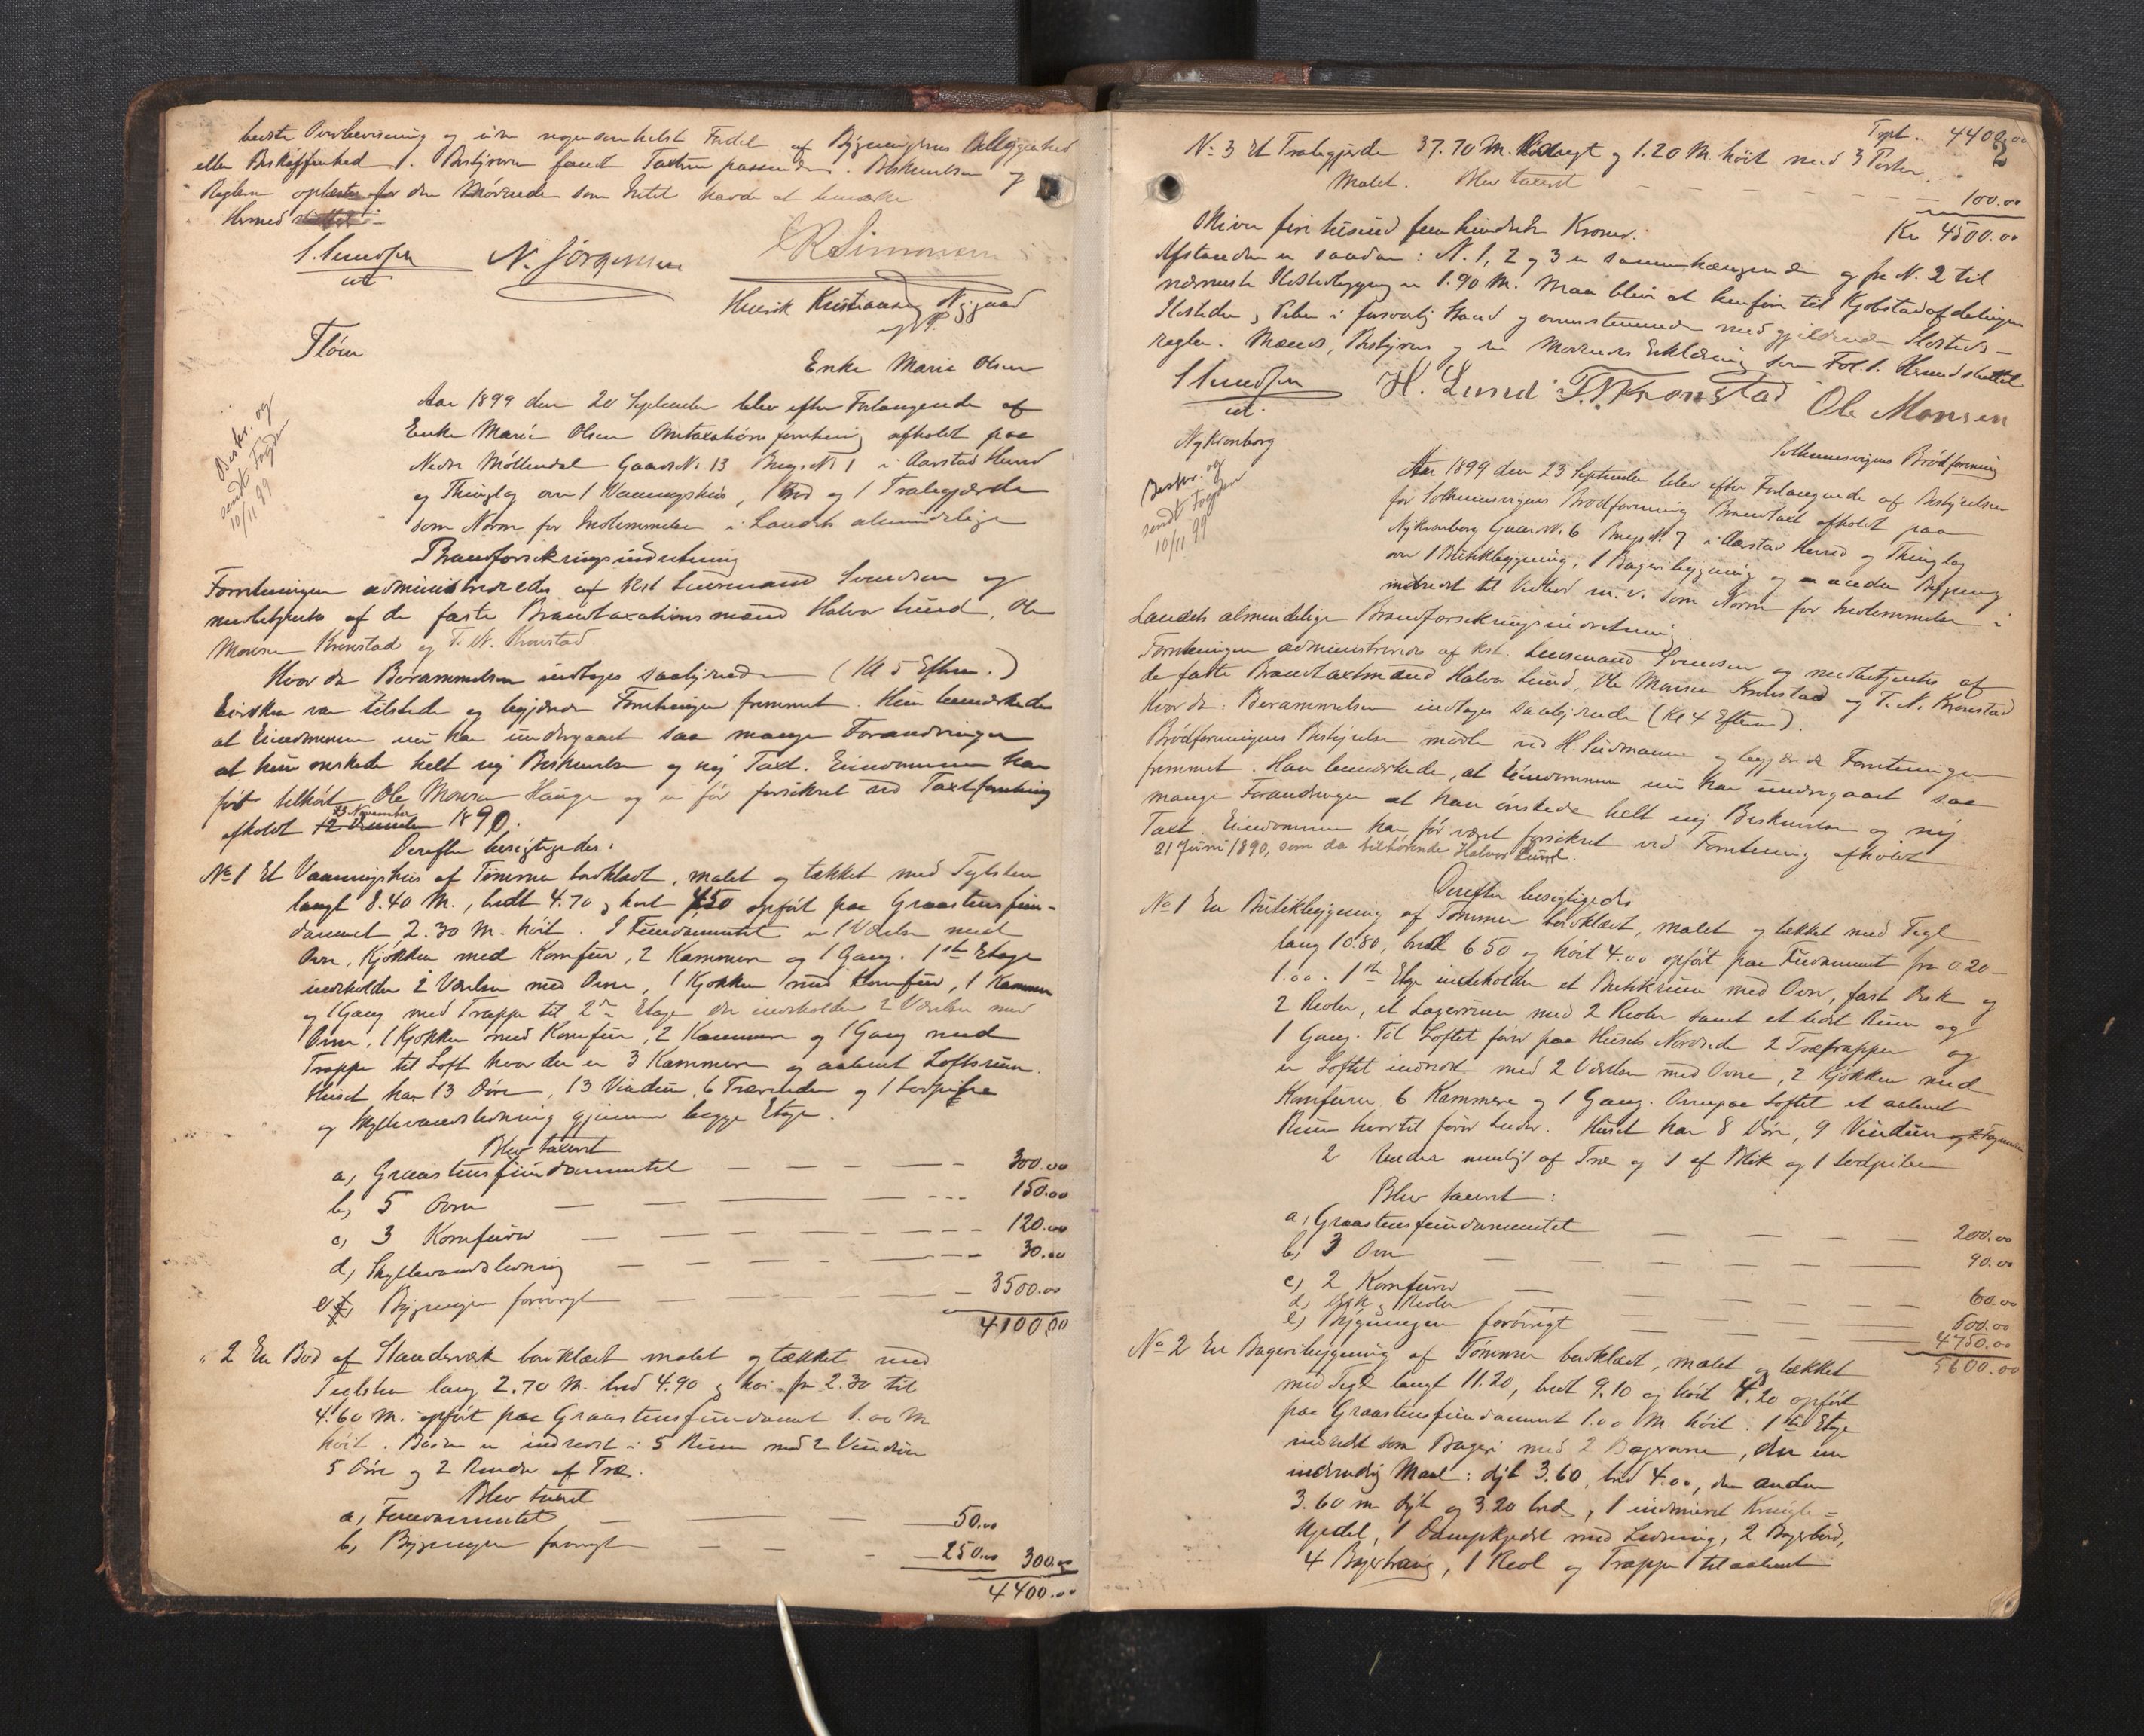 bedste Overbevisning og uden nogensomhelst Fordel af Bygningernes Beliggenhed
eller Beskaffenhed. Bestyreren fandt Taxten passende. Beskrivelsen og
Reglen oplæstes for den Mödende som Intet havde at bemærke
Hermed sluttet
S. Svendsen N. Jörgensen R Simonsen
cst
Henrik Kristiansen Nygaard
Flöen
Enke Marie Olsen
Beskr. og
sendt Fogden
10/11 99
Aar 1899 den 20 September blev efter Forlangende af
Enke Marie Olsen Omtaxationsforretning afholdt paa
Nedre Möllendal Gaards No 13 Brugs No 1 i Aarstad Herred
og Thinglag over 1 Vaaningshus, 1 Bod og 1 Tralegjerde
som Norm for Indlemmelse i Landets almindelige
Brandforsikringsindretning
Forretningen administreredes af Kst Lensmand Svendsen og
medbetjentes af de faste Brandtaxationsmænd Halvor Lund, Ole
Monsen Kronstad og T. N. Kronstad
Hvorda Berammelsen indtoges saalydende (Kl 5 Efterm.)
Eierske var tilstede og begjærede Forretningen fremmet. Hun bemærkede
at Eiendommen nu har undergaaet saa mange Forandringer
at hun önskede helt ny Beskrivelse og ny Taxt. Eiendommen har
för tilhört Ole Monsen Hauge og er för forsikret ved Taxtforretning
25 November
afholdt 12 1890.
Derefter besigtigedes:
No 1 Et Vaaningshus af Tömmer bordklædt, malet og tækket med Teglsten
langt 8.40 M., bredt 4.70 og höit 4.50 opfört paa Graastensfun-
dament 2.30 M. höit. I Fundamentet er 1 Værelse med
Ovn, Kjökken med Komfur, 2 Kammere og 1 Gang. 1ste Etage
indeholder 2 Værelser med Ovne, 1 Kjökken med Komfur, 1 Kammer
og 1 Gang med Trappe til 2den Etage der indeholder 2 Værelser med
Ovne, 1 Kjökken med Komfur, 2 Kammere og 1 Gang med
Trappe til Loft hvor der er 3 Kammere og aabent Loftsrum.
Huset har 13 Döre, 13 Vinduer, 6 Trærender og 1 Lodpibe
og Skyllevandsledning gjennem begge Etager.
Blev taxeret
a, Graastensfundamentet 300.00
b, 5 Ovne 150.00
c, 3 Komfurer 120.00
d, Skyllevandsledning 30.00
e, Bygningen forövrigt 3500.00
4100.00
" 2 En Bod af Standerværk bordklædt malet og tækket med
Teglsten lang 2.70 M. bred 4.90 og höi fra 2.30 til
4.60 M. opfört paa Graastensfundament 1.00 M
höit. Boden er indredet i 5 Rum med 2 Vinduer
5 Döre og 2 Render af Træ.
Blev taxeret
a, Fundamentet 50.00
b, Bygningen forövrigt 250.00 300.00
4400.00
Trpt. 4400.00
No 3 Et Tralegjerde 37.70 M. langt og 1.20 M. höit med 3 Porter
Malet. Blev taxeret 100.00
Skiver firi tusind fem hundrede Kroner. Kr 4500.00
Afstanden er saadan: N. 1, 2 og 3 er sammenhængende og fra N. 2 til
nærmeste Ildstedbygning er 1.90 M. Maa blive at henföre til Kjöbstadafdelingen
Ildsteder, Piber i forsvarlig Stand og overensstemmende med gjældende Ildsteds-
regler. Mænds, Bestyrers og den Mödendes Erklæring som Fol. 1. Hermed sluttet
S Svendsen H. Lund T. N. Kronstad Ole Monsen
cst.
Ny Kronborg
Solheimsvigens Brödforening
Beskr. og
sendt Fogden
10/11 99
Aar 1899 den 23 September blev efter Forlangende af Bestyrelsen
for Solheimsvigens Brödforening Brandtaxt afholdt paa
Ny Kronborg Gaards N. 6 Brugs N. 7 i Aarstad Herred og Thinglag
over 1 Butikbygning, 1 Bageribygning og en anden Bygning
indredet til Vedbod m. v. som Norm for Indlemmelse i
Landets almindelige Brandforsikringsindretning
Forretningen administreredes af Kst. Lensmand Svendsen og medbetjentes af
de faste Brandtaxtmænd Halvor Lund, Ole Monsen Kronstad og T. N. Kronstad
Hvorda: Berammelsen indtoges saalydende (Kl 4 Efterm).
Brödforeningens Bestyrelse mödte ved H. Sudmann og begjærede Forretningen
fremmet. Han bemærkede, at Eiendommen nu har undergaaet saa
mange Forandringer at han önskede helt ny Beskrivelse og ny
Taxt. Eiendommen har för været forsikret ved Forretning afholdt
21 Juni 1890, som da tilhörende Halvor Lund.
Derefter besigtigedes
No 1 En Butikbygning af Tömmer bordklædt, malet og tækket med Tegl
lang 10.80, bred 6.50 og höit 4.00 opfört paa Fundament fra 0.20 -
1.00. 1ste Etage indeholder et Butikrum med Ovn, fast Disk og
2 Reoler, et Lagerrum med 2 Reoler samt et lidet Rum og
1 Gang. Til Loftet förer paa Husets Nordside 2 Trætrapper og
er Loftet indredet med 2 Værelser med Ovne, 2 Kjökken med
Komfurer, 6 Kammere og 1 Gang. Ovenpaa Loftet et aabent
Rum hvortil förer Luder. Huset har 8 Döre, 9 Vinduer
2 Render nemlig 1 af Træ og 1 af Blik og 1 Lodpibe
Blev taxeret:
a, Graastensfundamentet 200.00
b, 3 Ovne 90.00
c, 2 Komfurer 60.00
d, Disk og Reoler 500.00
e, Bygningen forövrigt 4750.00
5600.00
No 2 En Bageribygning af Tömmer bordklædt, malet og tækket
med Tegl langt 11.20, bredt 9.10 og höit 4.20 opfört
paa Graastensfundament 1.00 M. höit. 1ste Etage
indredet som Bageri med 2 Bagerovne, den ene
indvendig Maal: dyb 3.60, bred 4.00, den anden
3.60 m dyb og 3.20 bred, 1 indmuret Kringle-
kjedel, 1 Dampkjedel med Ledning, 2 Bagerbord,
4 Bagertraug, 1 Reol og Trappe til aabent